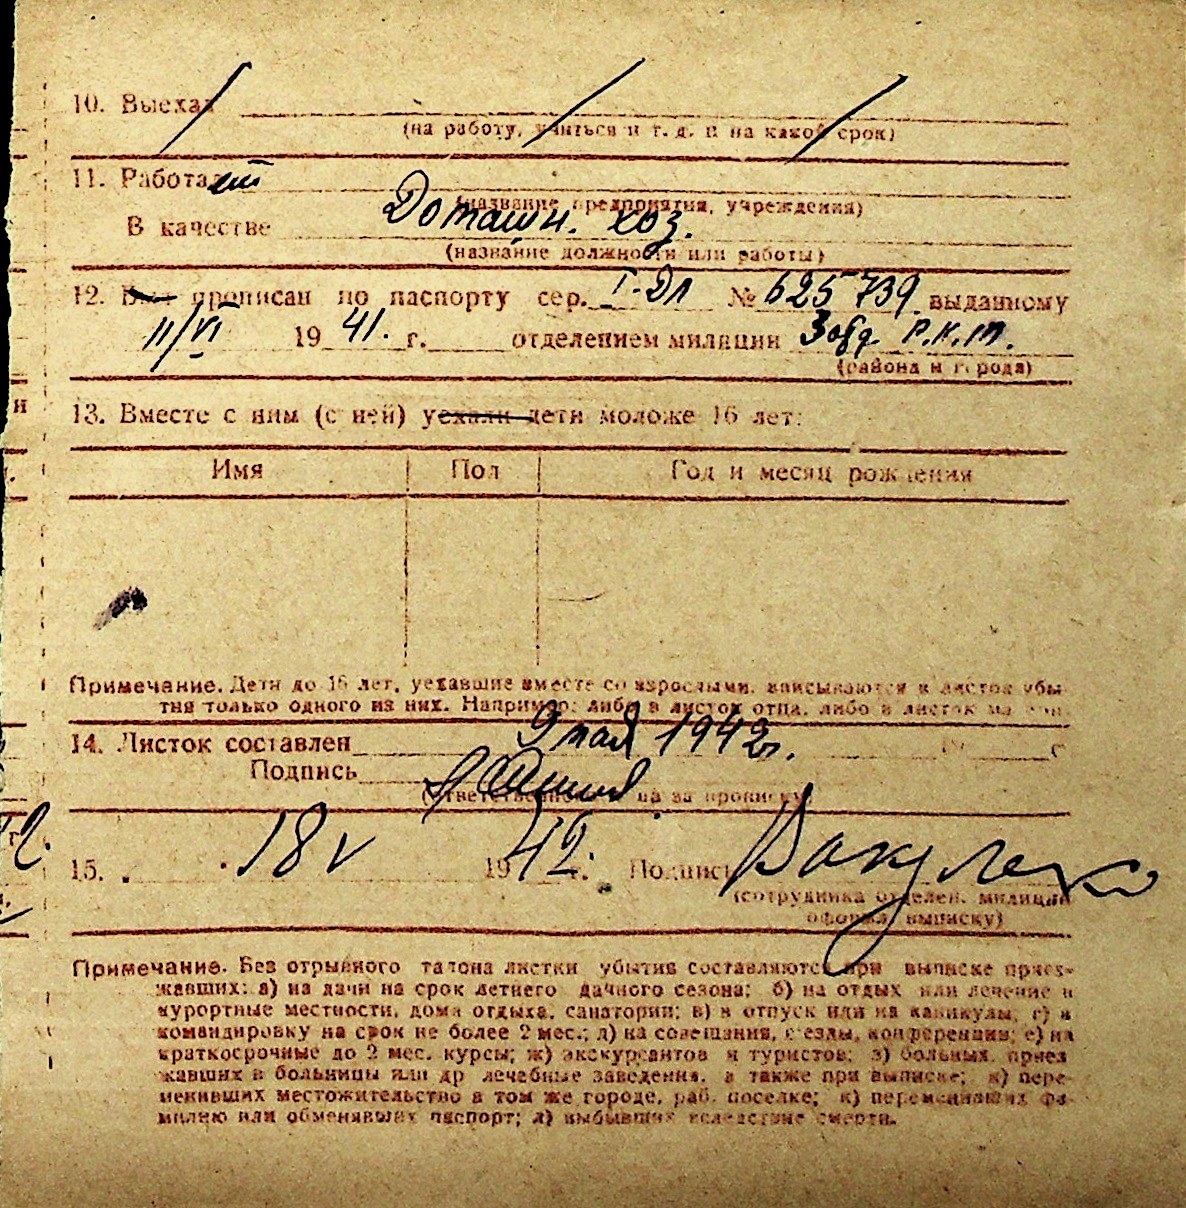 10. Выехал
(на работу, учиться и т. д. и на какой срок)
11. Работает
(название предприятия, учреждения)
В качестве Домашн. хоз.
(название должности или работы)
12. Был прописан по паспорту сер. I-ДЛ № 625739 выданному
11/VI 1941. г. отделением милиции Р.К.М.
(района и города)
13. Вместе с ним (с ней) уехали дети моложе 16 лет:
Имя Пол Год и месяц рождения
Примечание. Дети до 16 лет, уехавшие вместе со взрослыми, вписываются в листок убы-
тия только одного из них. Например: либо в листок отца, либо в листок
14. Листок составлен 9 мая 1942г. г
Подпись
(ответственного лица за прописку
15. 18 V 1942. Подпись
(сотрудника отделен. милиции
оформл. выписку)
Примечание. Без отрывного талона листки убытия составляются при выписке приез-
жавших: а) на дачи на срок летнего дачного сезона; б) на отдых или лечение в
курортные местности, дома отдыха, санатории; в) в отпуск или на каникулы; г) в
командировку на срок не более 2 мес.; д) на совещания, с'езды, конференции; е) на
краткосрочные до 2 мес. курсы; ж) экскурсантов и туристов; з) больных, приез
жавших в больницы или др лечебные заведения, а также при выписке; и) пере-
менивших местожительство в том же городе, раб. поселке; к) переменивших фа-
милию или обменявших паспорт; л) выбывших вследствие смерти.